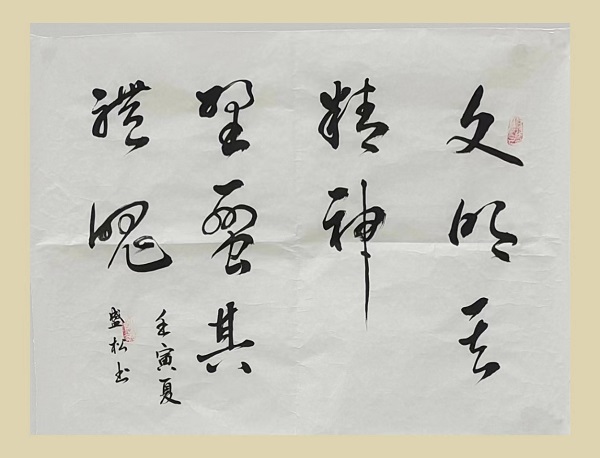 文明其
精神
野蛮其
體魄
壬寅夏
盛松书